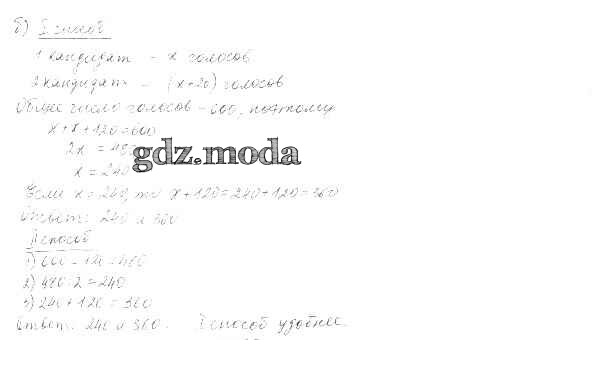 б) I способ
1 кандидат – x голосов
2 кандидат – (x+20) голосов
Общее число голосов – 600, поэтому
x+x+120=600
2x = 480
gdz.moda
x = 240
Если x=240, то x+120=240+120=360
Ответ: 240 и 360
II способ
1) 600-120=480
2) 480:2=240
3) 240+120=360
Ответ: 240 и 360. I способ удобнее